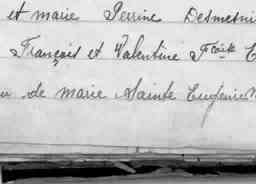 et marie Perrine Desmesni
François et Valentine
de marie Sainte Eugénie